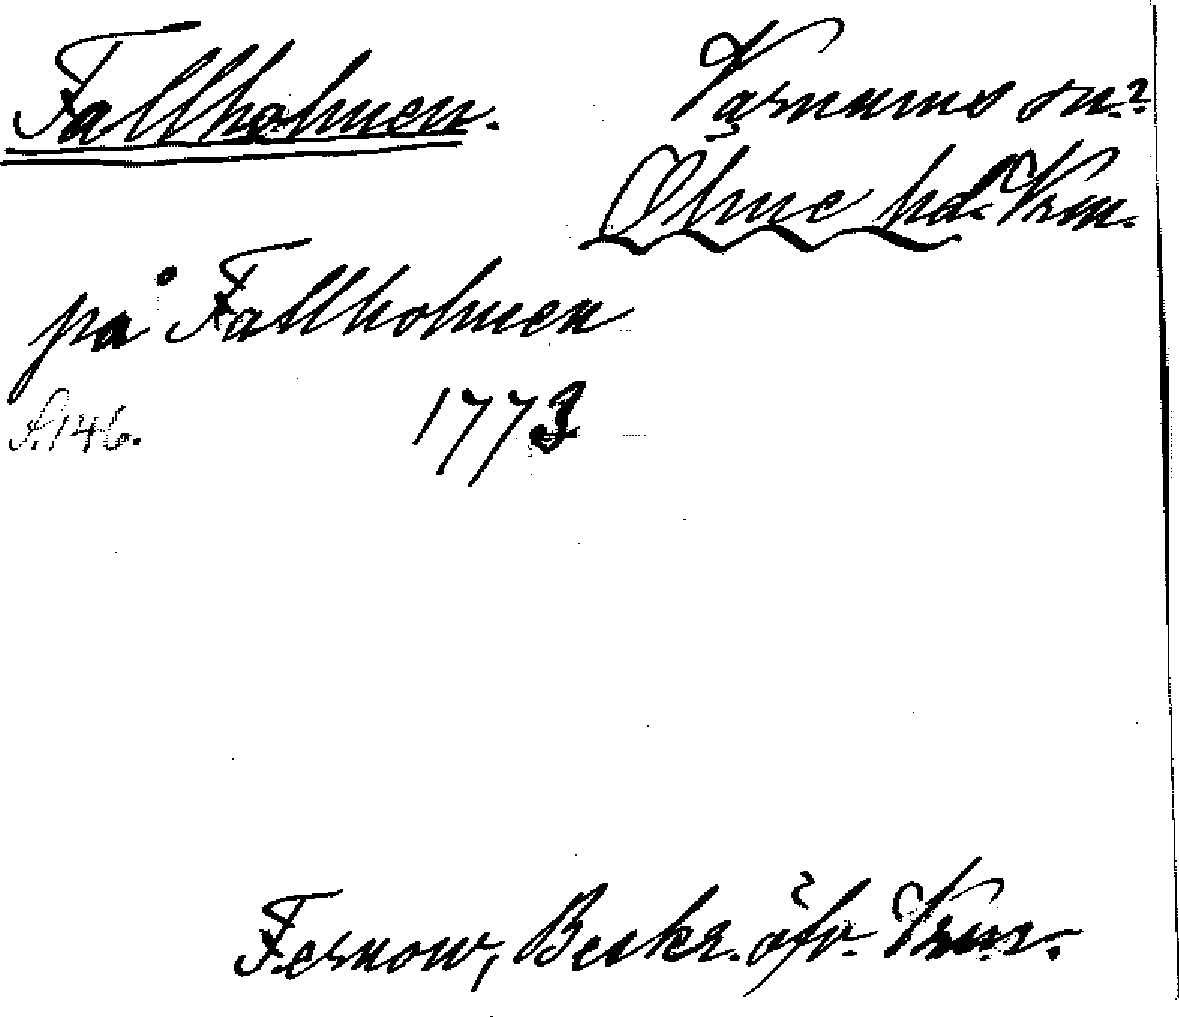 Fallholmen.
Varnums sn?
Ölme hd. Vrm.
på Fallholmen
S. 146. 1773
Fernow, Beskr. öfv. Vrm.